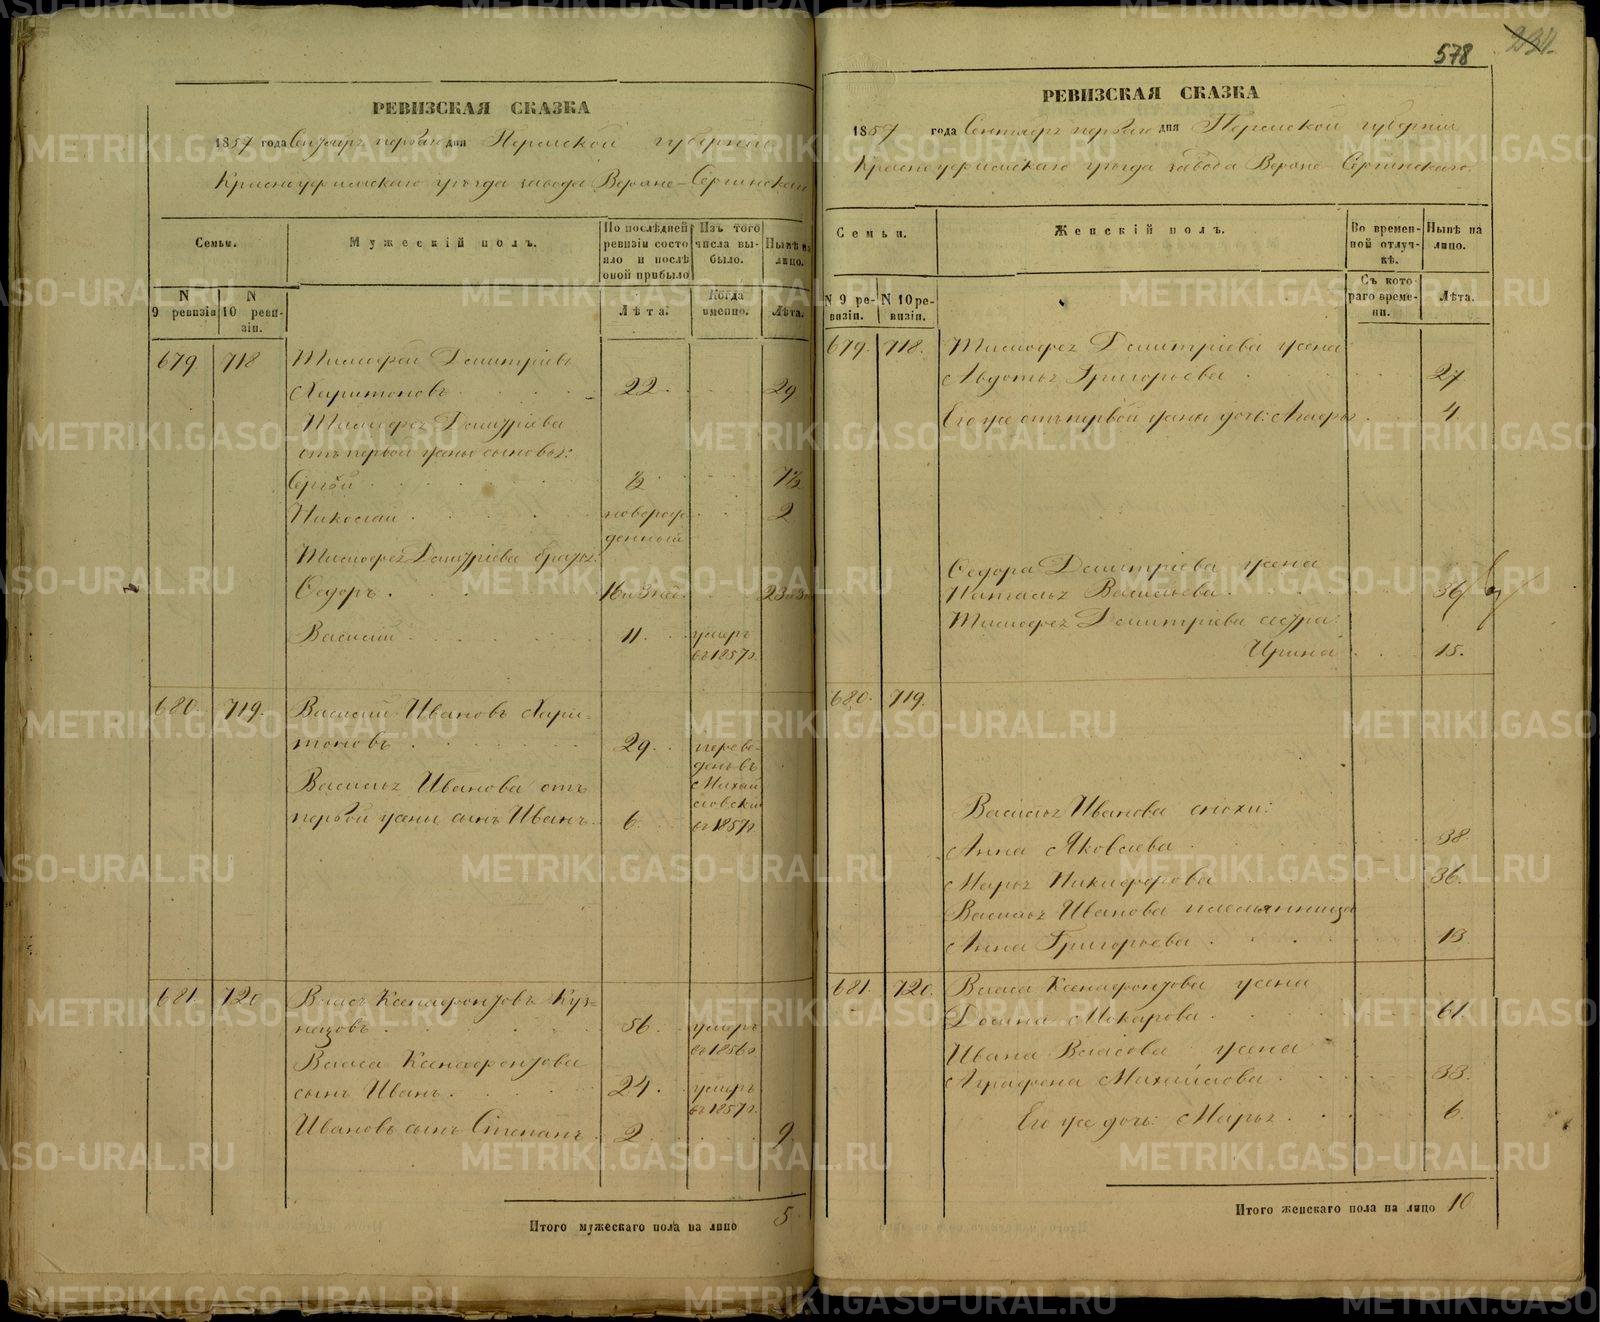 578
234.
РЕВИЗСКАЯ СКАЗКА
1857 года Сентябр первого дня Пермской губерніи
Красноуфимскаго уѣзда завода Верхне-Сергинскаго
Семьи.
Мужескій полъ.
По послѣдней ревизіи состояло и послѣ оной прибыло
Изъ того числа выбыло.
Нынѣ на лицо.
N 9 ревизіи
N 10 ревизіи.
Лѣта.
Когда именно.
Лѣта.
679. 718 Тимофей Дмитріевъ
Харитоновъ 22 29
Тимофея Дмитріева
отъ первой жены сыновья:
Сергѣй ½ 7½
Николай новорожденный 2
Тимофея Дмитріева братья:
Ѳедоръ 16 и 3 нед. 23 и 3
Василій 11 умеръ въ 1857 г.
680. 719. Василий Ивановъ Харитоновъ 29 переведенъ въ Михайловскій въ 1857 г.
Василья Иванова отъ
первой жены сынъ Иванъ 6
681. 720 Власъ Ксенафонтовъ Кузнецовъ 56 умеръ въ 1856 г
Власа Ксенафонтова
сынъ Иванъ 24 умеръ въ 1857 г.
Ивановъ сынъ Степанъ 2 9
Итого мужескаго пола на лицо 5
РЕВИЗСКАЯ СКАЗКА
1857 года Сентябр первого дня Пермской губерніи
Красноуфимскаго уѣзда завода Верхне-Сергинскаго.
Семьи.
Женскій полъ.
Во временной отлучкѣ.
Нынѣ на лицо.
N 9 ревизіи.
N 10 ревизіи.
Съ котораго времени.
Лѣта.
679. 718. Тимофея Дмитріева жена
Авдотья Григорьева 27
Его же отъ первой жены дочь: 4
Ѳедора Дмитріева жена
Наталья Васильева 36
Тимофея Дмитріева сестра:
Ирина 15.
680. 719.
Василья Иванова снохи:
Анна Яковлева 38
Марья Никифорова 36.
Василья Иванова племянница
Анна Григорьева 13
681. 720. Власа Ксенафонтова жена
Домна Макарова 61.
Ивана Власова жена
Аграфена Михайлова 33.
Его же дочь: Марья 6.
Итого женскаго пола на лицо 10
METRIKI.GASO-URAL.RU